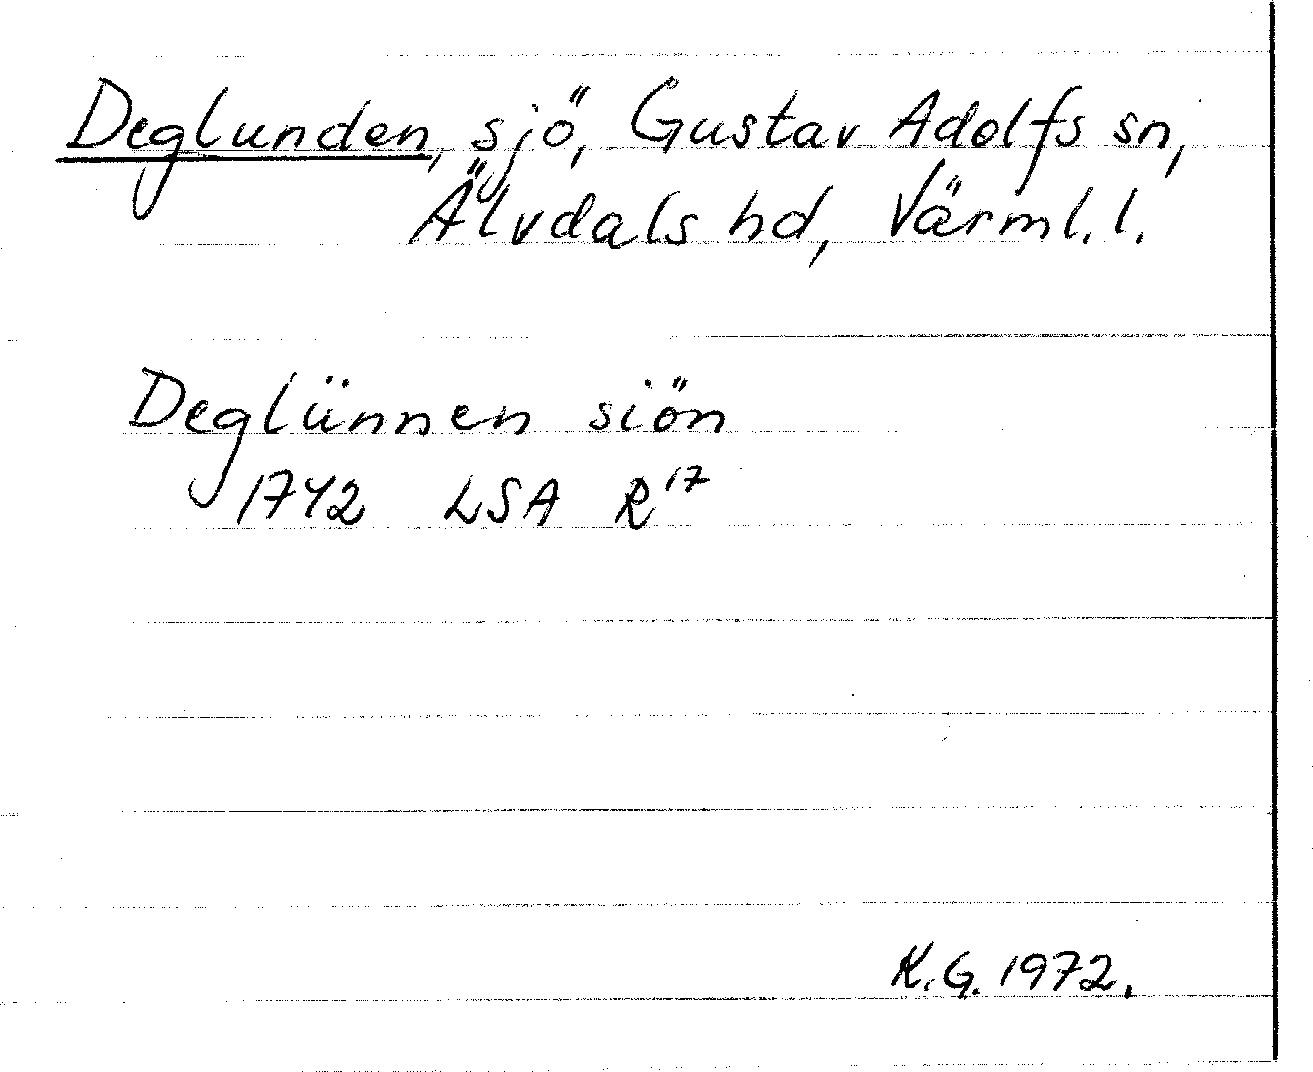 Deglunden, sjö, Gustav Adolfs sn,
Älvdals hd, Värml. l.
Deglünnen siön
1742 LSA R17
K.G. 1972.